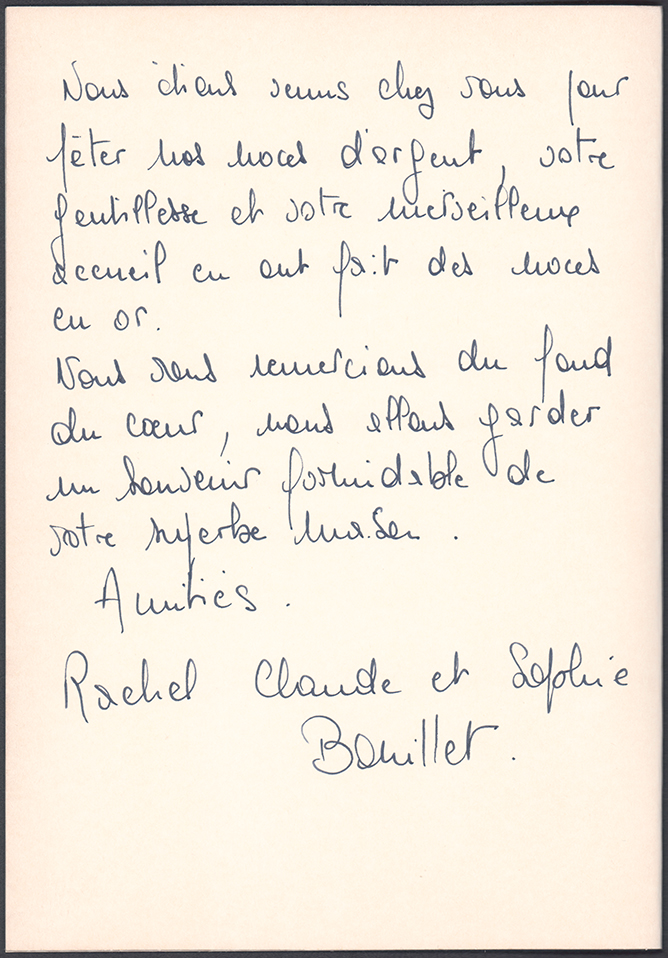 Nous étions venus chez vous pour
fêter nos noces d'argent, votre
gentillesse et votre merveilleux
accueil en ont fait des noces
en or.
Nous vous remercions du fond
du cœur, nous allons garder
un souvenir formidable de
votre superbe maison.
Amitiés.
Rachel Claude et Sophie
Bouillet.